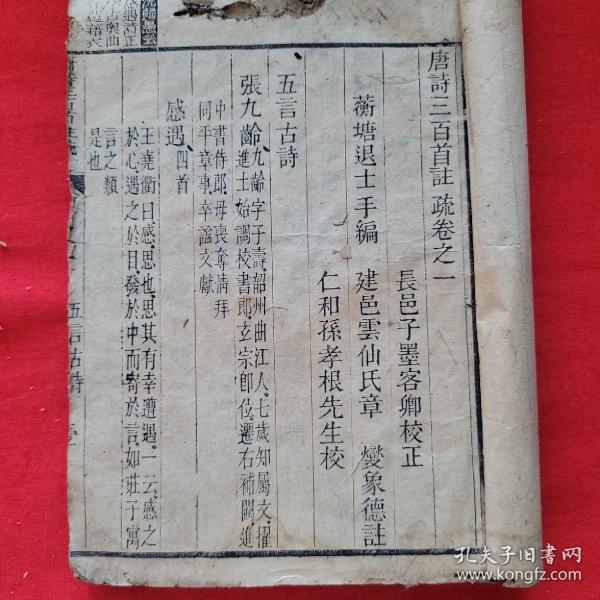 唐詩三百首註疏卷之一
長邑子墨客卿校正
蘅塘退士手編
建邑雲仙氏章 燮象德註
仁和孫孝根先生校
五言古詩
張九齡
九齡字子壽韶州曲江人七歲知屬文擢
進士始調校書郎玄宗即位遷右補闕進
中書侍郎母喪奪情拜
同平章事卒諡文獻
感遇四首
王堯衢曰感思也思其有幸遭遇一云感之
於心遇之於目發於中而寄於言如莊子寓
言之類
是也
五言古詩
孔夫子旧书网
www.kongfz.com